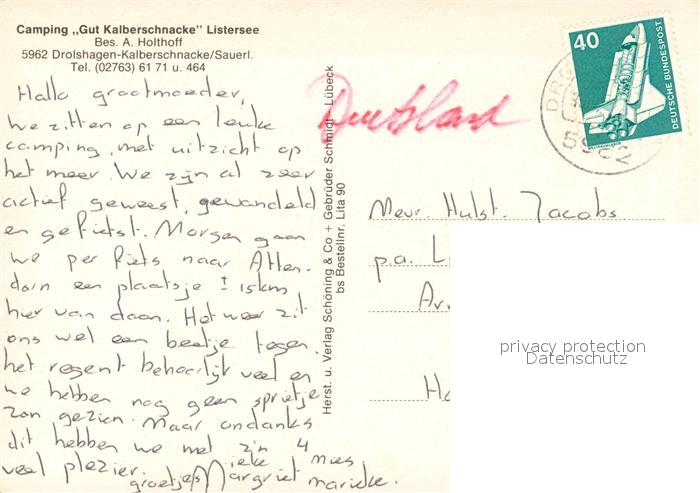 Camping „Gut Kalberschnacke" Listersee
Bes. A. Holthoff
5962 Drolshagen-Kalberschnacke/Sauerl.
Tel. (02763) 61 71 u. 464
Hallo grootmoeder,
We zitten op een leuke
camping, met uitzicht op
het meer. We zijn al zeer
actief geweest, gewandeld
en gefietst. Morgen gaan
we per fiets naar Atten-
dorn een plaatsje ± 15km
hier van daan. Het weer zit
ons wel een beetje tegen,
het regent behoorlijk veel en
we hebben nog geen sprietje
zon gezien. Maar ondanks
dit hebben we met z'n 4
veel plezier.
groetjes Margriet marieke.
ieke mies
Herst. u. Verlag Schöning & Co + Gebrüder Schmidt Lübeck
bs Bestellnr. Lita 90
Deutsland
40
DEUTSCHE BUNDESPOST
5962
Mevr. Hulst. Jacobs
p.a.
privacy protection
Datenschutz